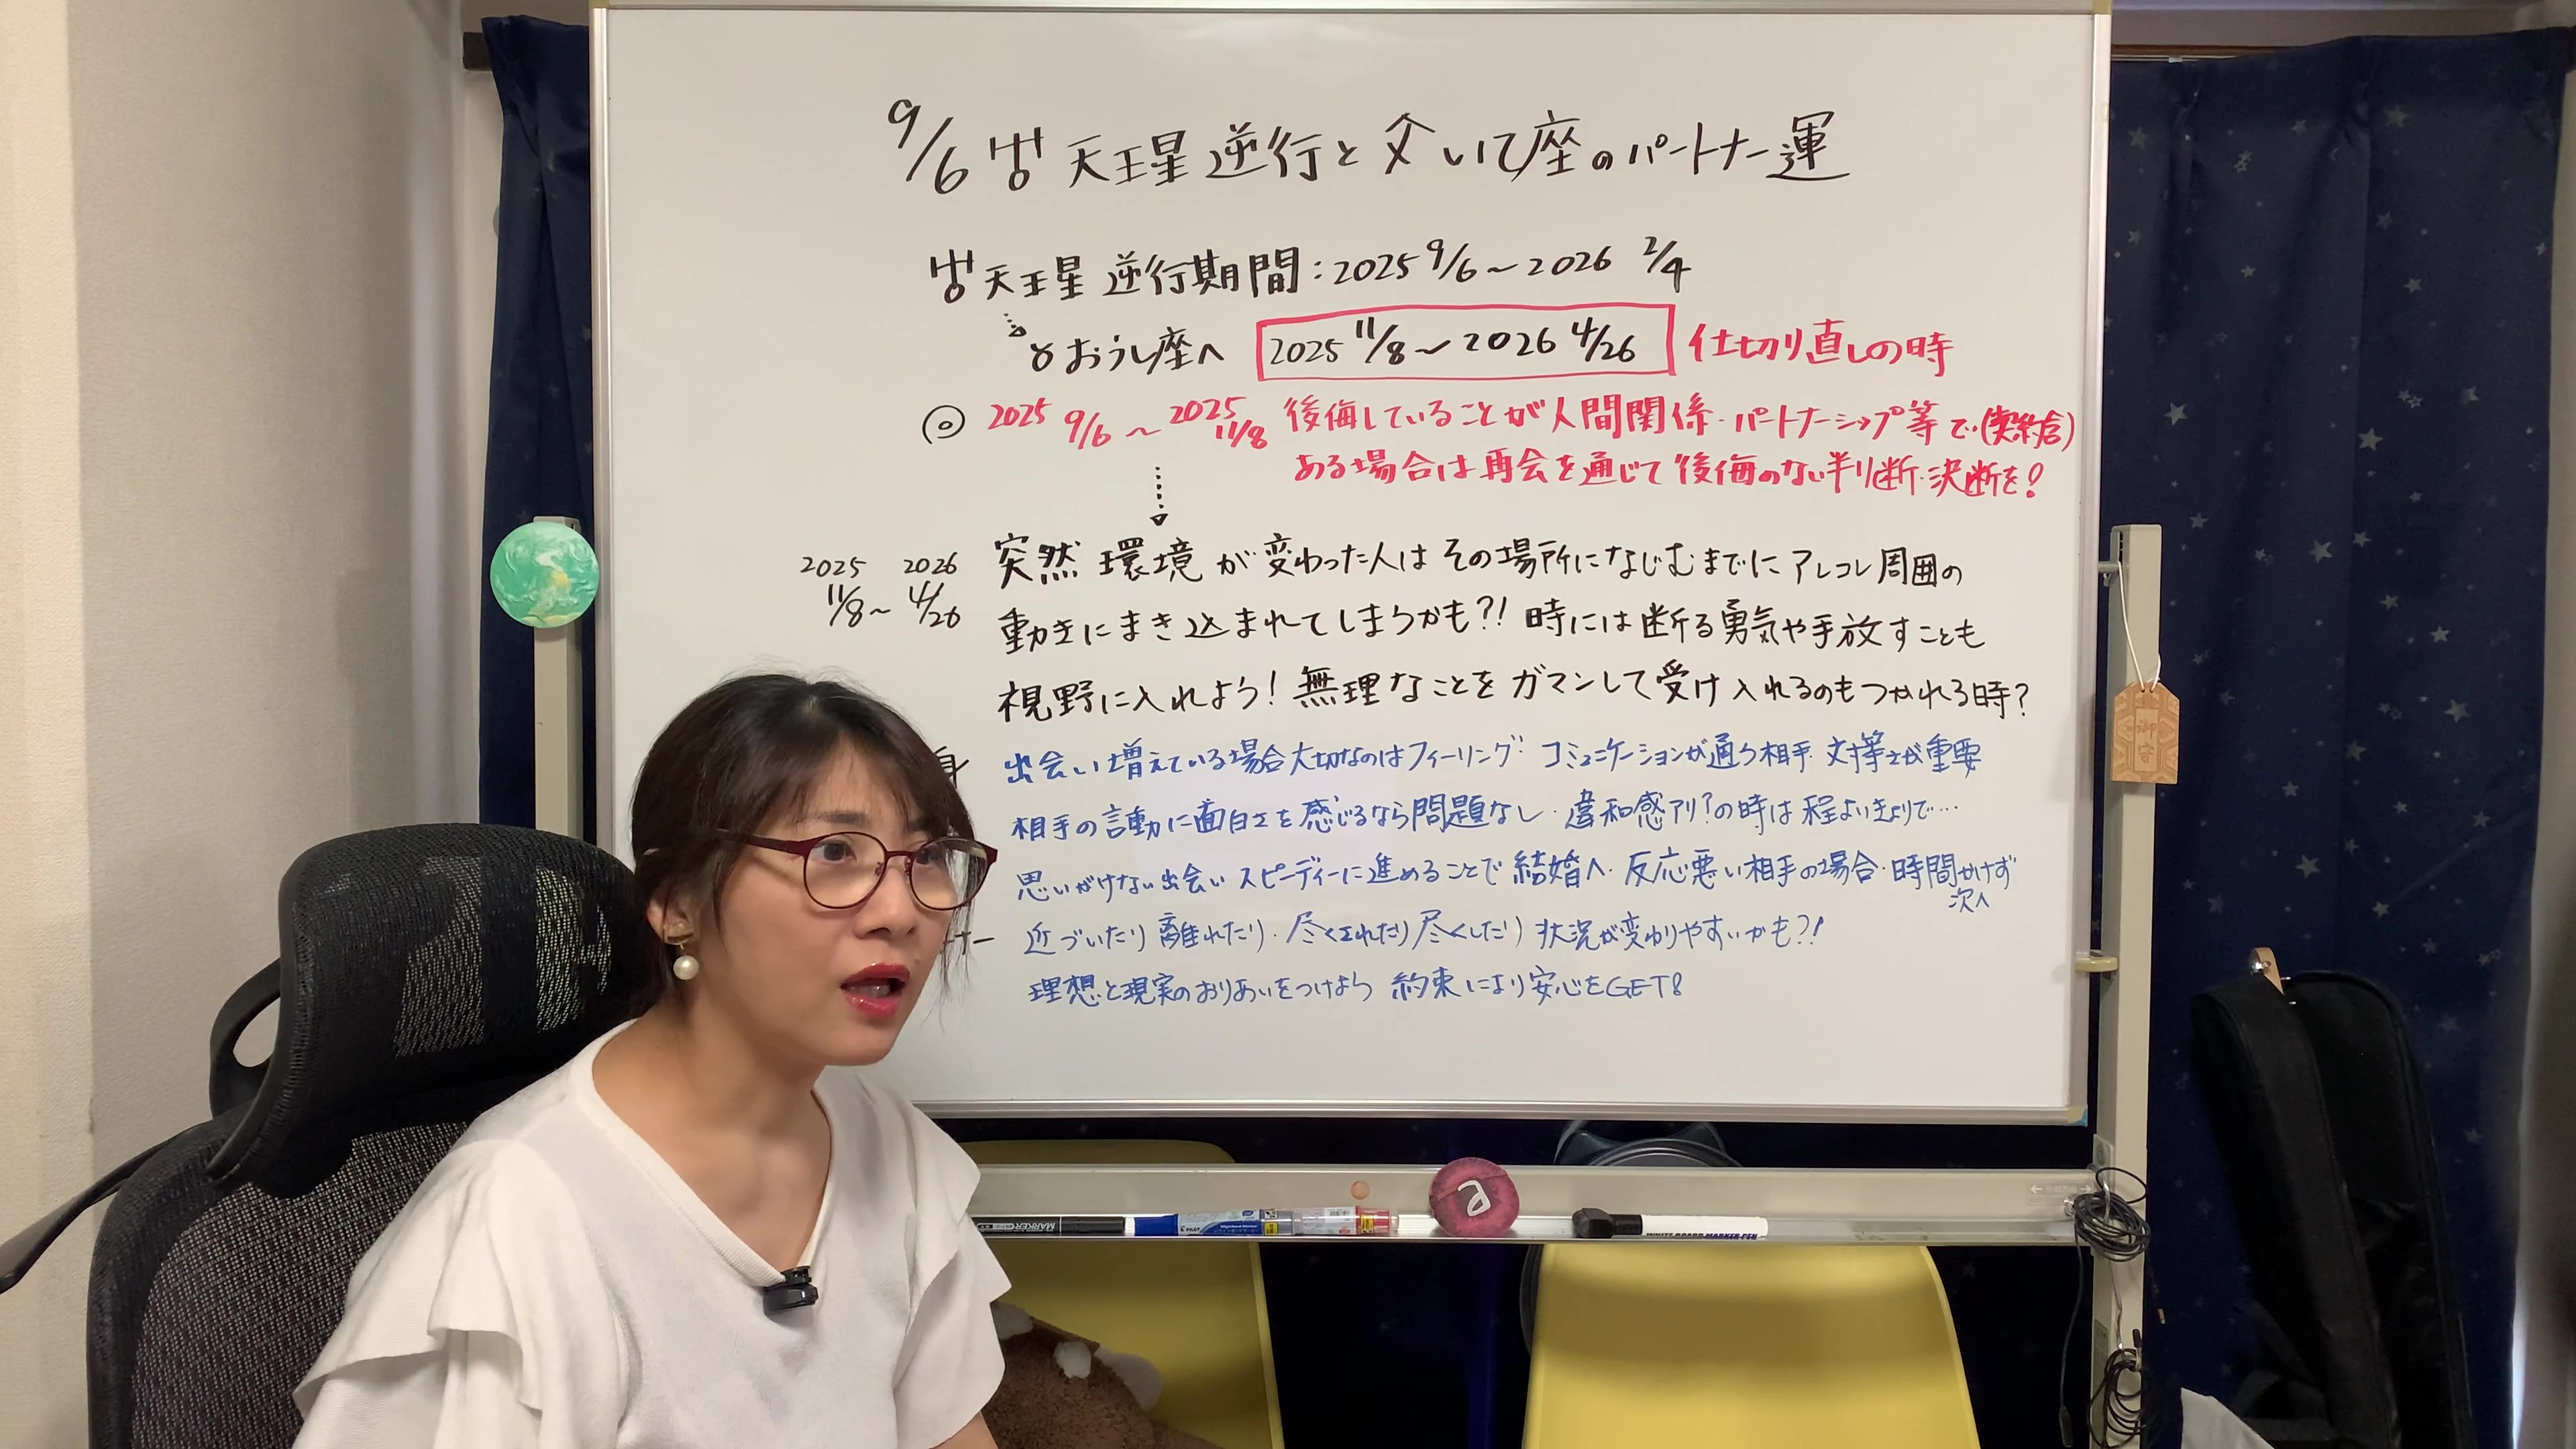 9/6 ♅ 天王星 逆行と ♐いて座のパートナー運
♅天王星 逆行期間:2025 9/6～2026 2/4
♉おうし座へ 2025 11/8～2026 4/26 仕切り直しの時
◎ 2025 9/6～2025 11/8 後悔していることが人間関係・パートナーシップ等で(契約含)
ある場合は再会を通じて後悔のない判断・決断を!
2025 11/8～2026 4/26
突然 環境が変わった人はその場所になじむまでにアレコレ周囲の
動きにまき込まれてしまうかも?! 時には断る勇気や手放すことも
視野に入れよう! 無理なことをガマンして受け入れるのもつかれる時?
身 出会い増えている場合大切なのはフィーリング・コミュニケーションが通う相手・対等さが重要
相手の言動に面白さを感じるなら問題なし・違和感アリ?の時は程よいきょりで…
思いがけない出会いスピーディーに進めることで結婚へ・反応悪い相手の場合・時間かけず
次へ
ナー 近づいたり離れたり・尽くされたり尽くしたり状況が変わりやすいかも?!
理想と現実のおりあいをつけよう 約束により安心をGET!
御守
a
MARKER
PILOT
WHITE BOARD MARKER PEN